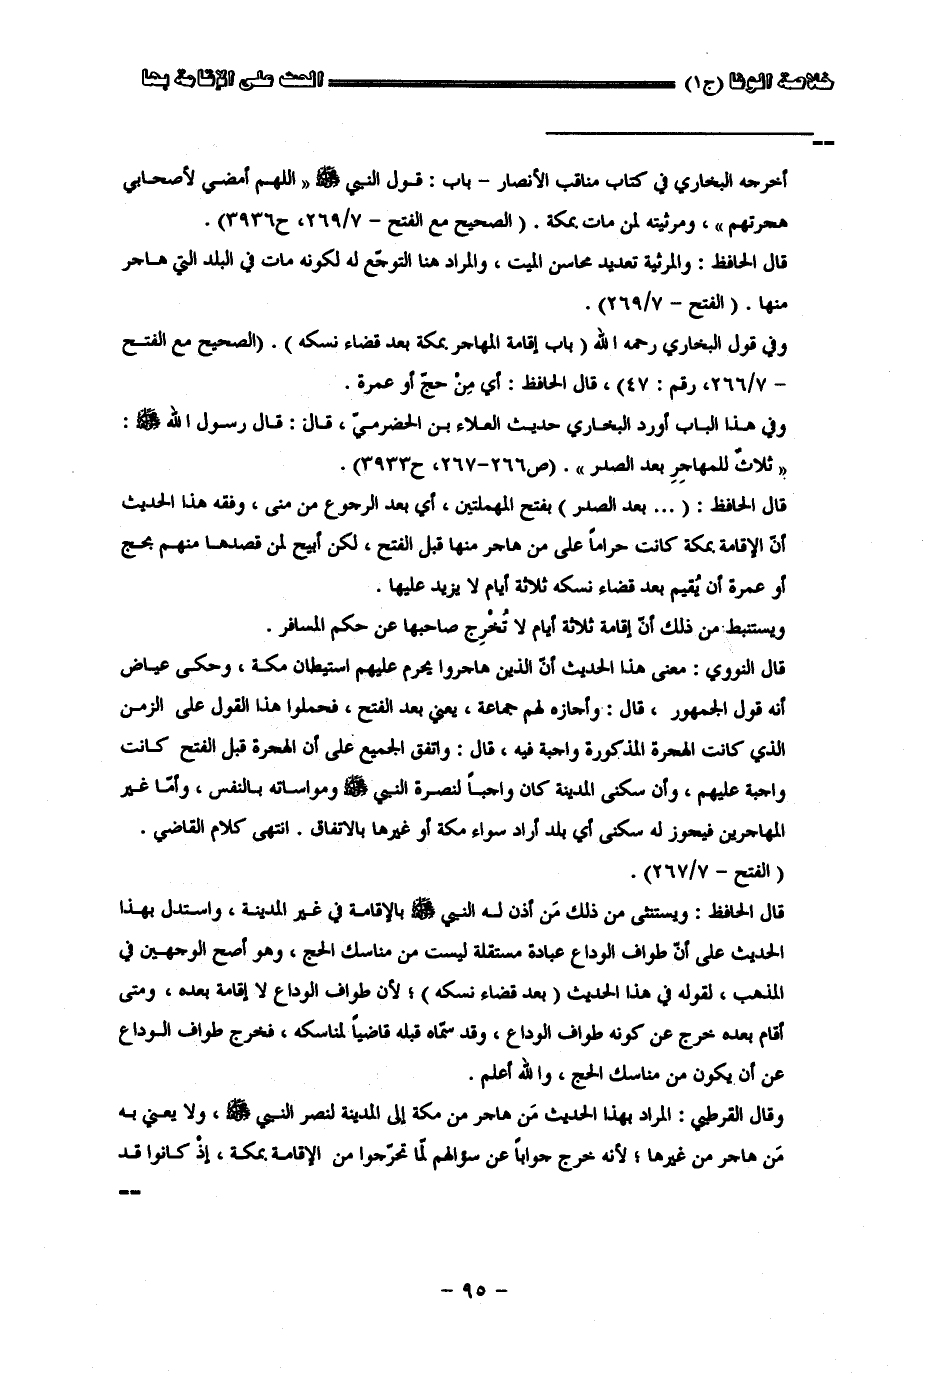 خلاصة الوفا (ج١) الحث على الإقامة بها
--
أخرجه البخاري في كتاب مناقب الأنصار - باب : قـول النبي ﷺ « اللهـم أمضـي لأصحـابي
هجرتهم » ، ومرثيته لمن مات بمكة . ( الصحيح مع الفتح - ٢٦٩/٧، ح٣٩٣٦) .
قال الحافظ : والمرثية تعديد محاسن الميت ، والمراد هنا التوجّع له لكونه مات في البلد التي هـاجر
منها . ( الفتح - ٢٦٩/٧) .
وفي قول البخاري رحمه الله ( باب إقامة المهاجر بمكة بعد قضاء نسكه ) . (الصحيح مع الفتـح
- ٢٦٦/٧، رقم : ٤٧) ، قال الحافظ : أي مِنْ حجّ أو عمرة .
وفي هـذا البـاب أورد البخـاري حديـث العـلاء بـن الحضرمـيّ ، قـال : قـال رسـول الله ﷺ :
« ثلاثٌ للمهاجرِ بعد الصدر » . (ص٢٦٦-٢٦٧، ح٣٩٣٣) .
قال الحافظ : ( ... بعد الصدر ) بفتح المهملتين ، أي بعد الرجوع من منى ، وفقه هذا الحديث
أنّ الإقامة بمكة كانت حراماً على من هاجر منها قبل الفتح ، لكن أبيح لمن قصدهـا منهـم بحـج
أو عمرة أن يُقيم بعد قضاء نسكه ثلاثة أيام لا يزيد عليها .
ويستنبط من ذلك أنّ إقامة ثلاثة أيام لا تُخْرِج صاحبها عن حكم المسافر .
قال النووي : معنى هذا الحديث أنّ الذين هاجروا يحرم عليهم استيطان مكـة ، وحكـى عيـاض
أنه قول الجمهور ، قال : وأجازه لهم جماعة ، يعني بعد الفتح ، فحملوا هذا القول على الزمـن
الذي كانت الهجرة المذكورة واجبة فيه ، قال : واتفق الجميع على أن الهجرة قبل الفتح كـانت
واجبة عليهم ، وأن سكنى المدينة كان واجبـاً لنصرة النبي ﷺ ومواسـاته بـالنفس ، وأمّـا غـير
المهاجرين فيجوز له سكنى أي بلد أراد سواء مكة أو غيرها بالاتفاق . انتهى كلام القاضي .
( الفتح - ٢٦٧/٧) .
قال الحافظ : ويستثنى من ذلك مَن أذن لـه النبي ﷺ بالإقامـة في غـير المدينـة ، واسـتدل بهـذا
الحديث على أنّ طواف الوداع عبادة مستقلة ليست من مناسك الحج ، وهو أصح الوجهـين في
المذهب ، لقوله في هذا الحديث ( بعد قضاء نسكه ) ؛ لأن طواف الوداع لا إقامة بعده ، ومتى
أقام بعده خرج عن كونه طواف الوداع ، وقد سمّاه قبله قاضياً لمناسكه ، فخرج طواف الـوداع
عن أن يكون من مناسك الحج ، والله أعلم .
وقال القرطبي : المراد بهذا الحديث مَن هاجر من مكة إلى المدينة لنصر النبي ﷺ ، ولا يعـني بـه
مَن هاجر من غيرها ؛ لأنه خرج جواباً عن سؤالهم لمّا تحرّجوا من الإقامـة بمكـة ، إذْ كـانوا قـد
--
- ٩٥ -